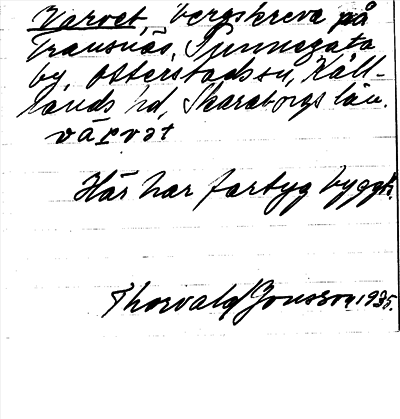 Varvet, bergskreva på
Transnäs, Sunnegata
by, Otterstads sn, Kåll-
lands hd, Skaraborgs län.
värvət
Här har fartyg byggts.
Thorvald Jonsson 1935.